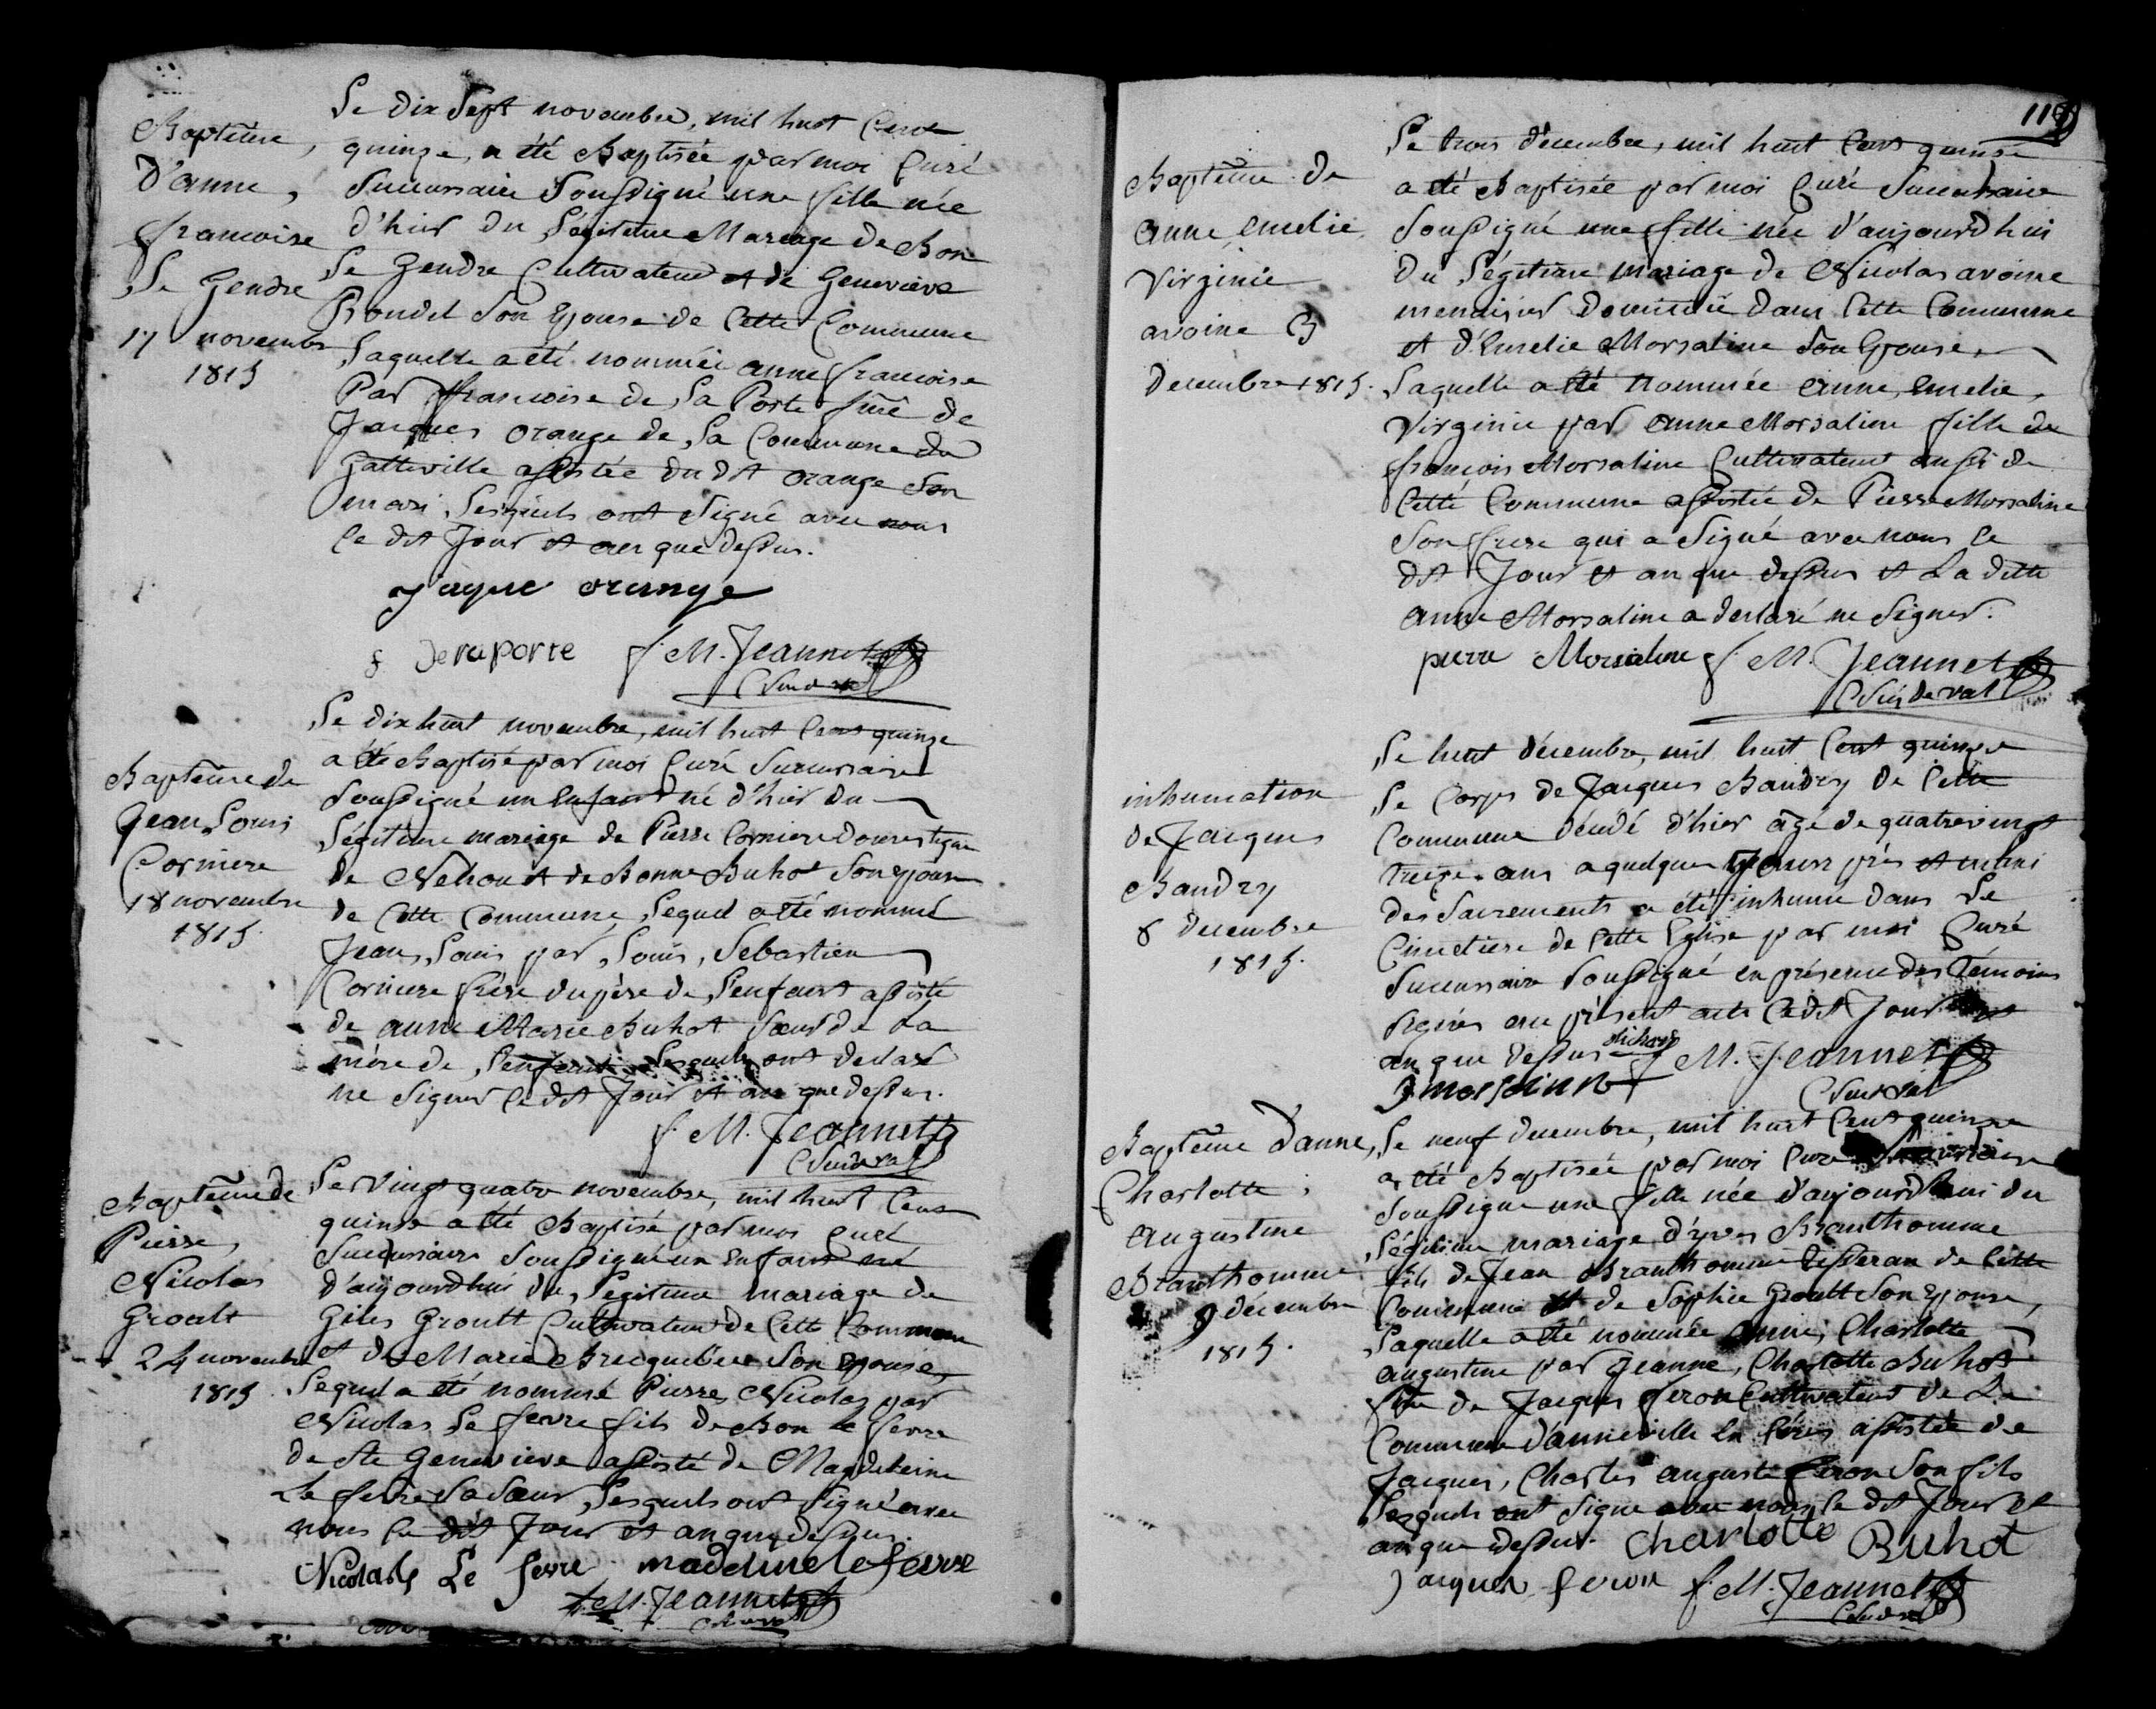 Baptême
D'anne,
francoise
Le Gendre
17 novembre
1815
Le dix Sept novembre, mil huit Cent
quinze, a été Baptisée par moi Curé
Succursaire Soussigné une fille née
d'hier du Légitime Mariage de Bon
Le Gendre Cultivateur et de Genevieve
Rondel Son Epouse de Cette Commune
Laquelle a été nommée anne francoise
Par francoise de La Porte fme de
Jacques orange de La Commune de
Gatteville assistée du dit orange Son
mari, Lesquels ont Signé avec nous
le dit Jour et an que dessus.
Jaque orange
f Delaporte f. M. Jeannet
Baptême de
Jean Louis
Corniere
18 novembre
1815.
Le dix huit novembre, mil huit Cent quinze
a été Baptisé par moi Curé Succursaire
Soussigné un Enfant né d'hier du
Légitime mariage de Pierre Corniere Domestique
de Nehou et de Bonne Buhot Son Epouse
de Cette Commune, Lequel a été nommé
Jean, Louis par Louis, Sebastien
Corniere frère du père de L'enfant assisté
de anne Marie Buhot Sœur de La
mère de L'enfant Lesquels ont déclaré
ne Signer le dit Jour et an que dessus.
f. M. Jeannet
Baptême de
Pierre,
Nicolas
Groult
24 novembre
1815.
Le vingt quatre novembre, mil huit Cent
quinze a été Baptisé par moi Curé
Succursaire Soussigné un Enfant né
d'aujourdhui du Légitime mariage de
Giles Groult Cultivateur de Cette Commune
et de Marie Bricquebec Son Epouse,
Lequel a été nommé Pierre, Nicolas par
Nicolas Le fevre fils de Bon le fevre
de Ste Genevieve assisté de Magdeleine
Le fevre Sa Sœur, Lesquels ont Signé avec
nous le dit Jour et an que dessus.
Nicolas Le fevre madeleine le fevre
f. M. Jeannet
Baptême de
anne, emelie
Virginie
avoine
Decembre 1815.
Le trois décembre, mil huit Cent quinze
a été Baptisée par moi Curé Succursaire
Soussigné une fille née d'aujourdhui
du Légitime mariage de Nicolas avoine
menuisier Domicilié dans Cette Commune
et d'Emelie Morsaline Son Epouse,
Laquelle a été nommée anne, emelie,
Virginie par anne Morsaline fille de
francois Morsaline Cultivateur aussi de
Cette Commune assistée de Pierre Morsaline
Son frere qui a Signé avec nous le
dit Jour et an que dessus et La ditte
anne Morsaline a declaré ne Signer.
pierre Morsaline f. M. Jeannet
inhumation
de Jacques
Baudry
8 decembre
1815.
Le huit décembre, mil huit Cent quinze
Le Corps de Jacques Baudry de Cette
Commune décédé d'hier âgé de quatrevingt
treize ans a quelques Jours près et muni
des Sacrements a été inhumé dans Le
Cimetiere de Cette Eglise par moi Curé
Succursaire Soussigné en présence des Témoins
Signés au présent acte le dit Jour et
an que dessus f. M. Jeannet
Baptême D'anne,
Charlotte,
augustine
Branthomme
9 décembre
1815.
Le neuf decembre, mil huit Cent quinze
a été Baptisée par moi Curé Succursaire
Soussigné une fille née d'aujourdhui du
Légitime mariage d'yves Branthomme
fils de Jean Branthomme tisseran de Cette
Commune et de Sophie Groult Son Epouse,
Laquelle a été nommée anne, Charlotte
augustine par Jeanne, Charlotte Buhot
fme de Jacques feron Cultivateur de La
Commune d'anneville en Cères assistée de
Jacques, Charles auguste feron Son fils
Lesquels ont Signé avec nous le dit Jour et
an que dessus. Charlotte Buhot
Jacques feron f. M. Jeannet